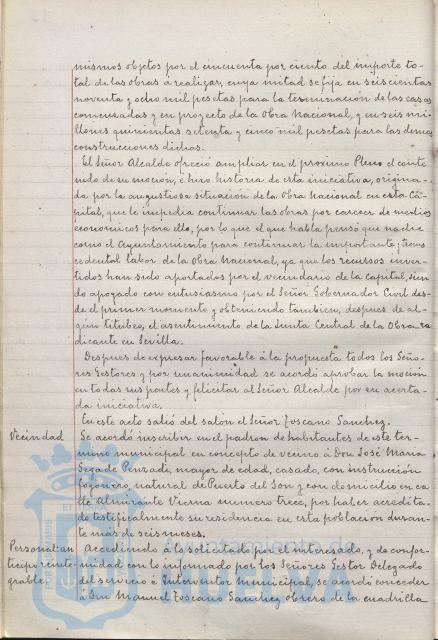 mismos objetos por el cincuenta por ciento del importe to-
tal de las obras á realizar, cuya mitad se fija en seiscientas
noventa y ocho mil pesetas para la terminación de las casas
comenzadas y en proyecto de la Obra Nacional, y en seis mi-
llones quinientas setenta y cinco mil pesetas para las demas
construcciones dichas.
El Señor Alcalde ofreció ampliar en el proximo Pleno el conte
nido de su moción, é hizo historia de esta iniciativa, origina-
da por la angustiosa situación de la Obra Nacional en esta Cá-
pital, que le impedia continuar las obras por carecer de medios
economicos para ello, por lo que el que habla pensó que nadie
como el Ayuntamiento para continuar la importante y trans
cedental labor de la Obra Nacional, ya que los recursos inver-
tidos han sido aportados por el vecindario de la capital, sien
do apoyado con entusiasmo por el Señor Gobernador Civil des-
de el primer momento y obteniendo tambien, despues de al-
gún titubeo, el asentimiento de la Junta Central de la Obra ra
dicante en Sevilla.
Despues de expresar favorable á la propuesta todos los Seño-
res Gestores y por unanimidad se acordó aprobar la moción
en todas sus partes y felicitar al Señor Alcalde por su acerta-
da iniciativa.
En este acto salió del salon el Señor Toscano Sanchez.
Vecindad Se acordó inscribir en el padron de habitantes de este ter-
mino municipal en concepto de vecino á Don José Maria
mayor de edad, casado, con instrucción
fogonero, natural de Puerto del Son y con domicilio en ca
lle Almirante Vierna numero trece, por haber acredita-
do testificalmente su residencia en esta población duran-
te más de seis meses.
Personal: an Accediendo á lo solicitado por el interesado, y de confor-
ticipo reinte- midad con lo informado por los Señores Gestor Delegado
grable. del servicio é Interventor Municipal, se acordó conceder
á Don Manuel Toscano Sanchez obrero de la cuadrilla
Ayuntamiento de